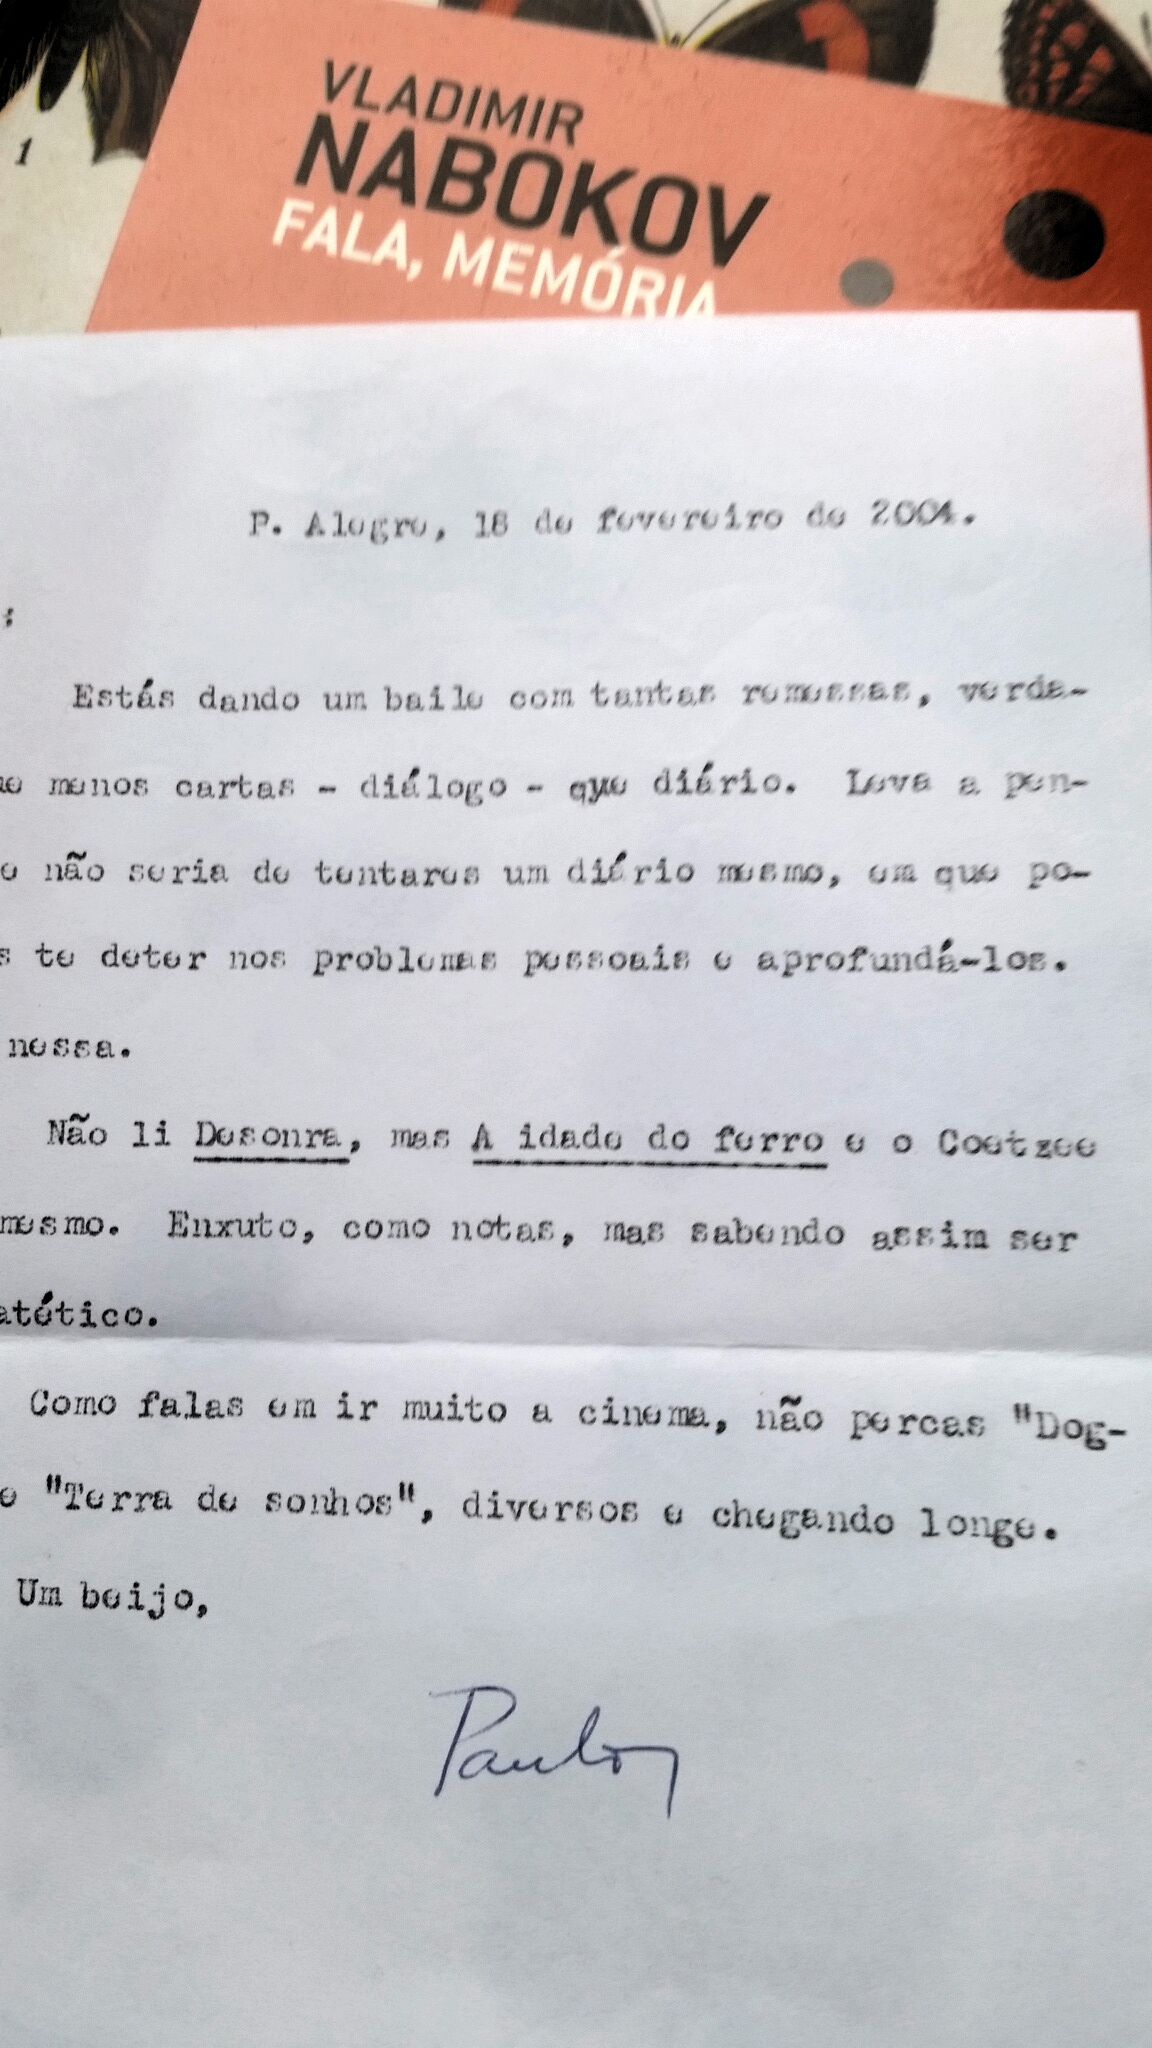 1
VLADIMIR
NABOKOV
FALA, MEMÓRIA
P. Alegre, 18 de fevereiro de 2004.
:
Estás dando um baile com tantas remessas, verda-
menos cartas - diálogo - que diário. Leva a pen-
não seria de tentares um diário mesmo, em que po-
s te deter nos problemas pessoais e aprofundá-los.
nessa.
Não li Desonra, mas A idade do ferro e o Coetzee
mesmo. Enxuto, como notas, mas sabendo assim ser
atético.
Como falas em ir muito a cinema, não percas "Dog-
e "Terra de sonhos", diversos e chegando longe.
Um beijo,
Paulo